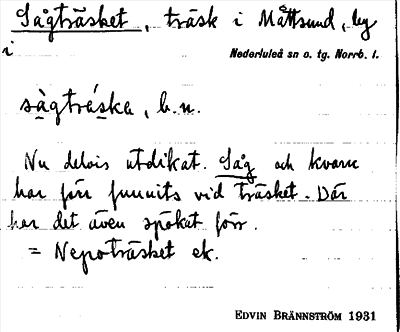 Sågträsket, träsk i Måttsund, by
i
Nederluleå sn o. tg. Norrb. l.
sågträska, b.n.
Nu delvis utdikat. Såg och kvarn
har förr funnits vid träsket. Där
har det även spökat förr.
= Neppoträsket ek.
EDVIN BRÄNNSTRÖM 1931